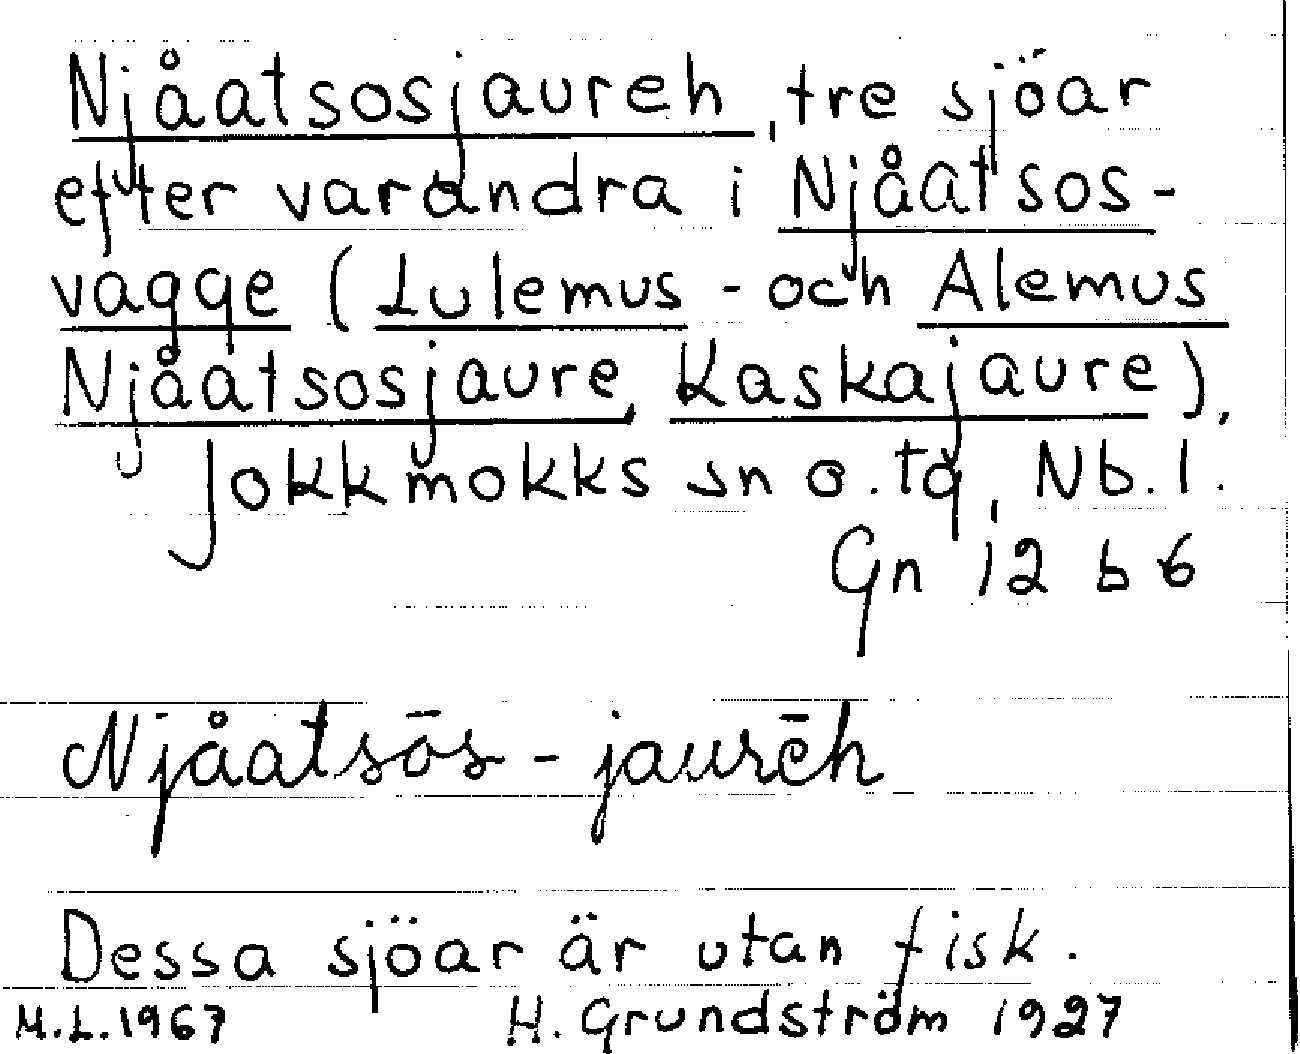 Njåatsosjaureh, tre sjöar
efter varandra i Njåatsos-
vagge (Lulemus - och Alemus
Njåatsosjaure, Kaskajaure),
Jokkmokks sn o. tg, Nb. l.
Gn 12 b 6
Njåatsōs - jaurēh
Dessa sjöar är utan fisk.
M.L. 1967 H. Grundström 1927